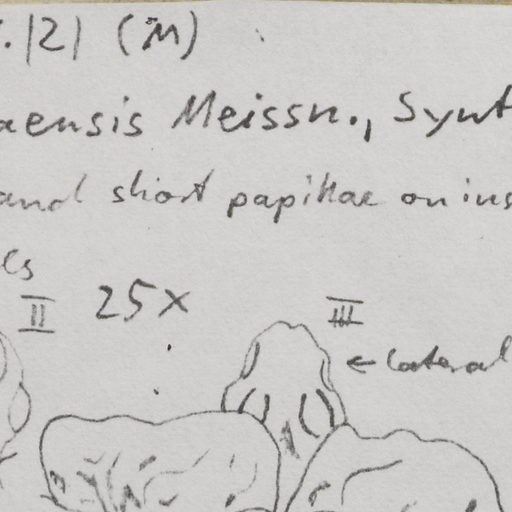 .121 (M)
aensis Meissn., Synt
and short papillae on ins
es
II 25x III
← lateral